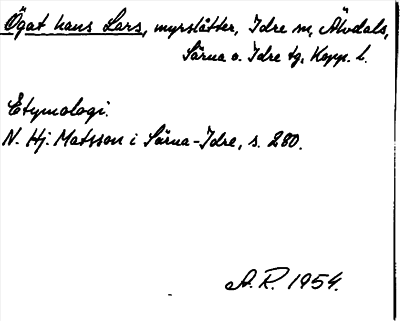 Ögat hans Lars, myrslåtter, Idre sn, Älvdals,
Särna o. Idre tg, Kopp. l.
Etymologi.
N. Hj. Matsson i Särna-Idre, s. 280.
A. R. 1954.